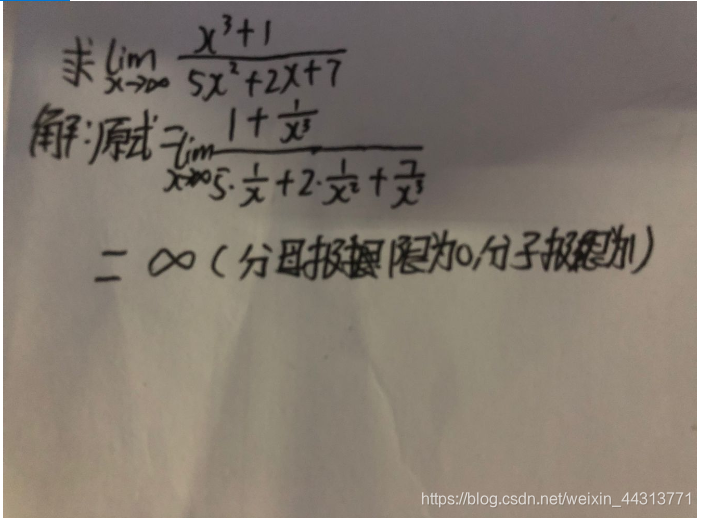 求 lim x→∞ (x³+1)/(5x²+2x+7)
解:原式=lim x→∞ (1+1/x³)/(5·1/x+2·1/x²+7/x³)
=∞(分母极限为0,分子极限为1)
https://blog.csdn.net/weixin_44313771